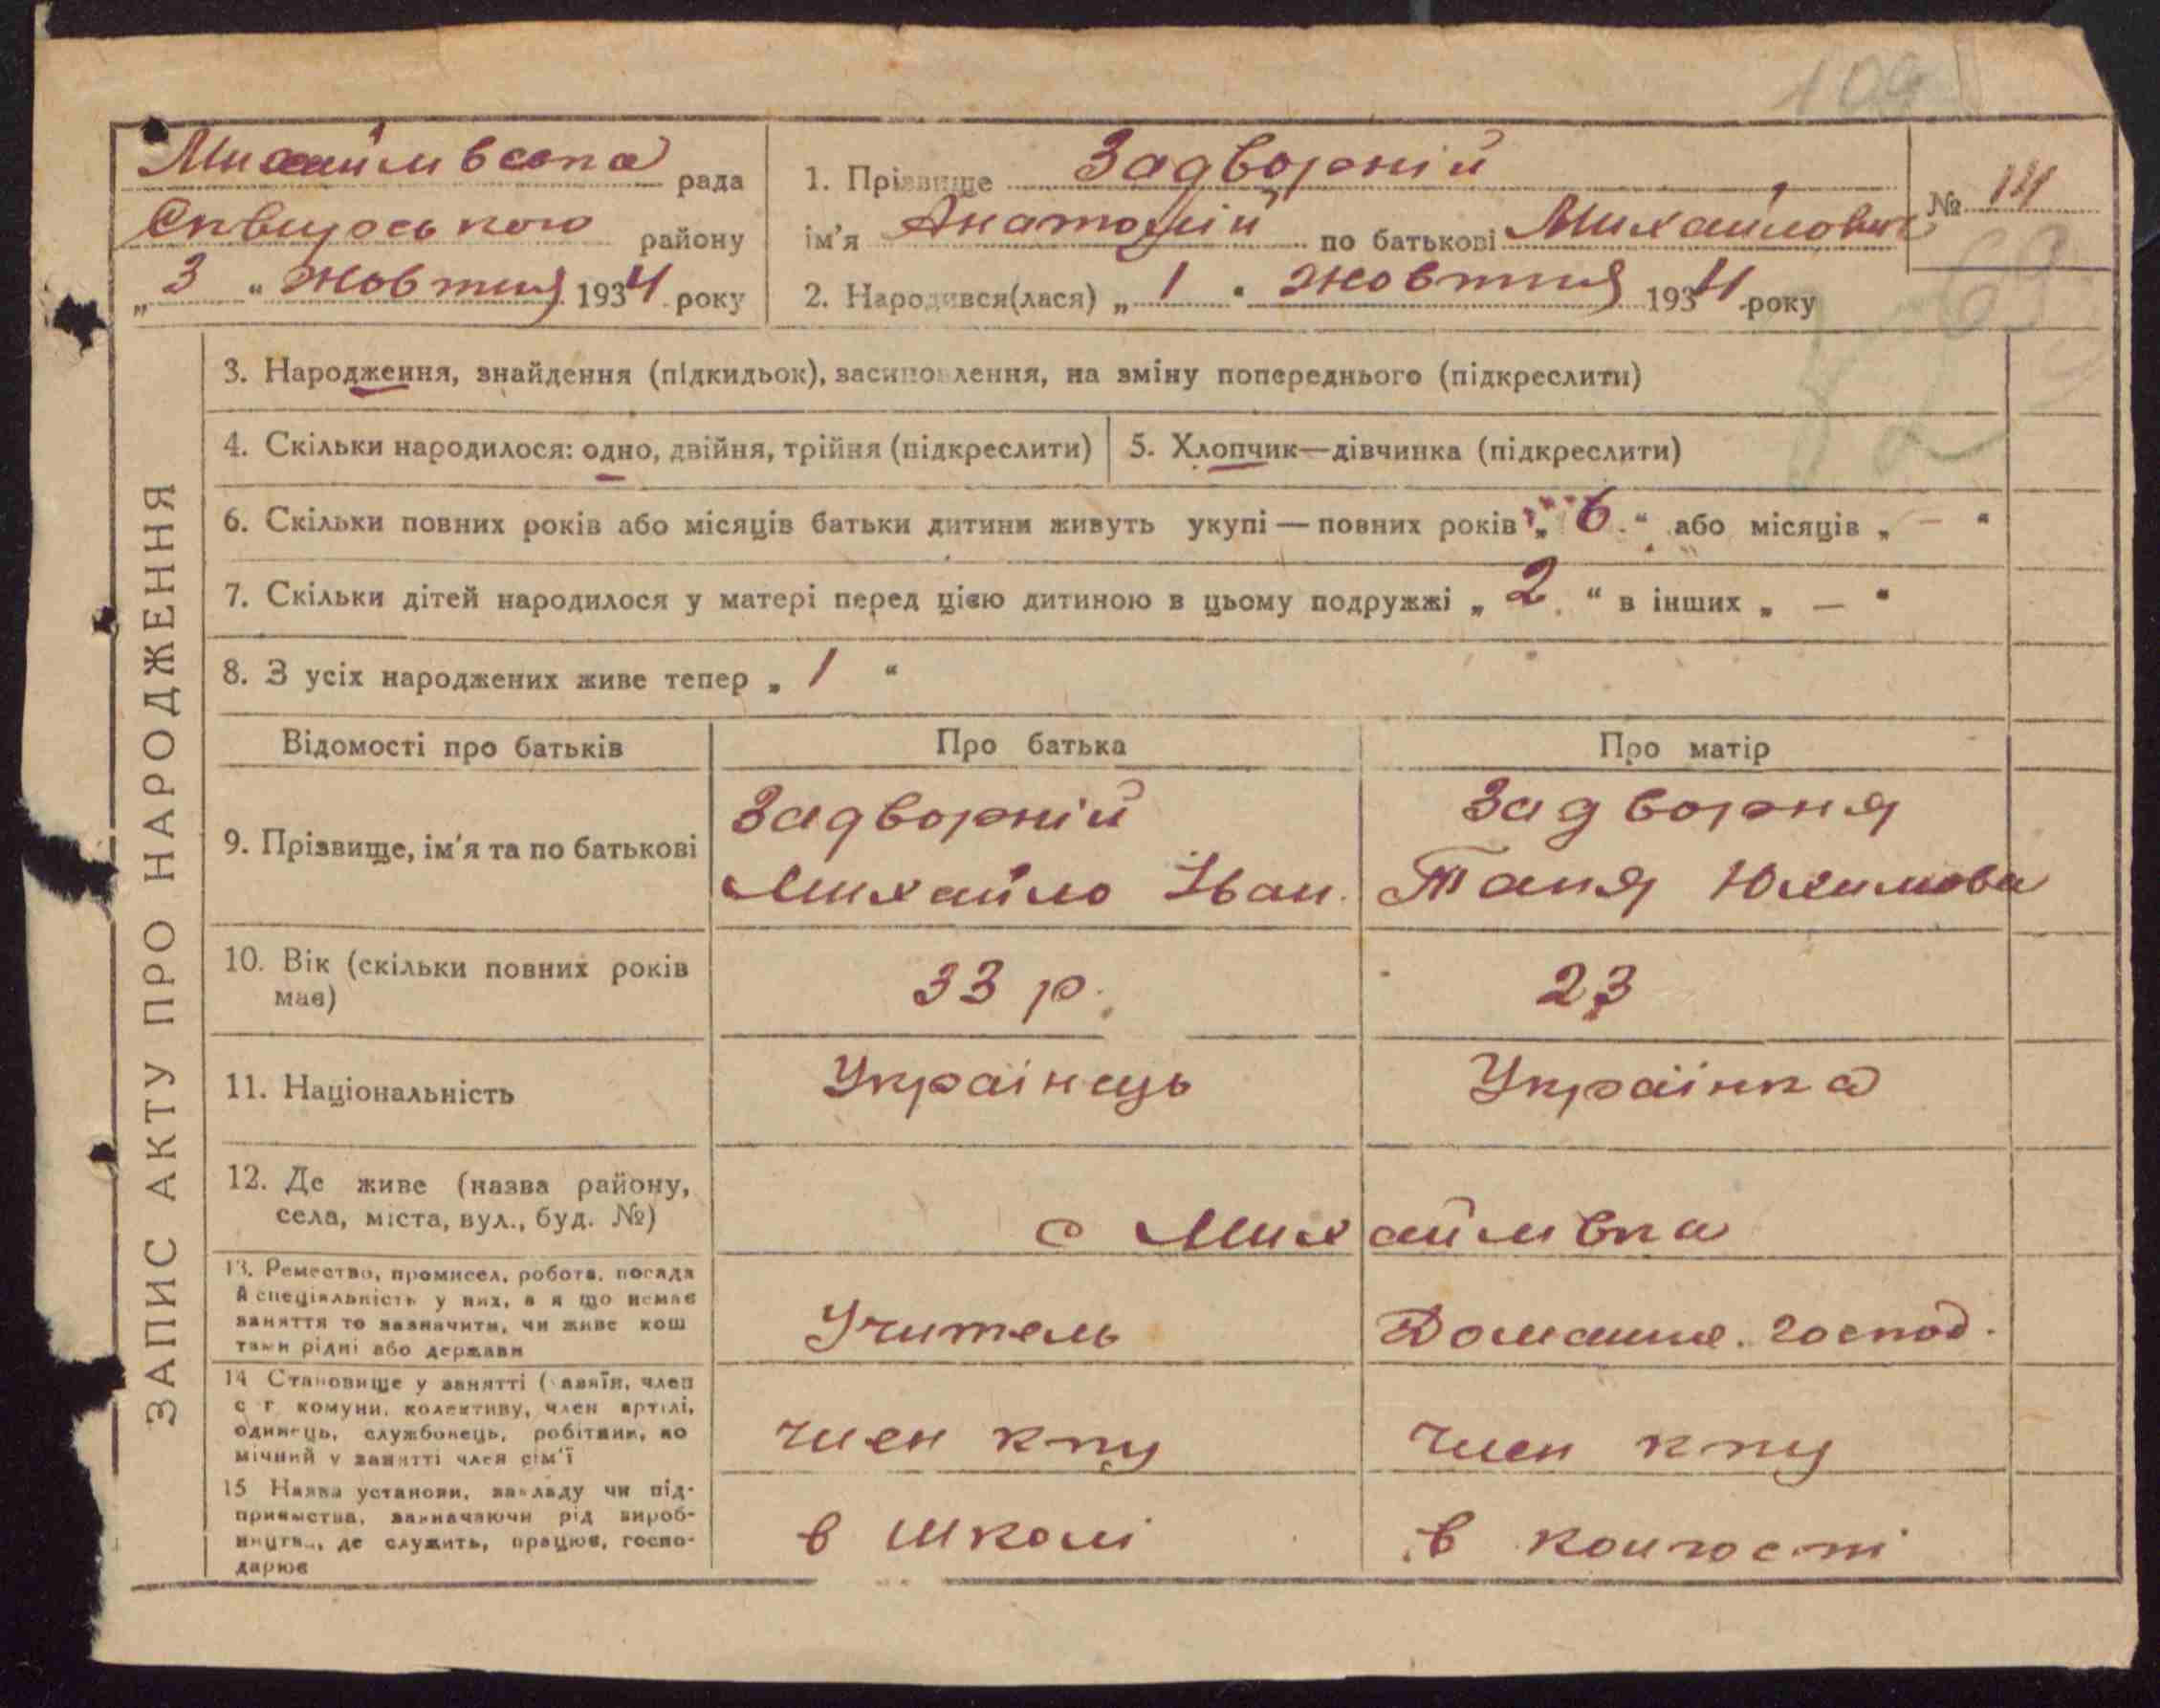 109
Михайлівська рада
Сквирського району
„3“ Жовтня 1934 року
1. Прізвище Задворній
ім'я Анатолій по батькові Михайлович
2. Народився(лася) „1“ Жовтня 1934 року
№ 14
ЗАПИС АКТУ ПРО НАРОДЖЕННЯ
3. Народження, знайдення (підкидьок), засиновлення, на зміну попереднього (підкреслити)
4. Скільки народилося: одно, двійня, трійня (підкреслити)
5. Хлопчик—дівчинка (підкреслити)
6. Скільки повних років або місяців батьки дитини живуть укупі — повних років „6“ або місяців „—“
7. Скільки дітей народилося у матері перед цією дитиною в цьому подружжі „2“ в інших „—“
8. З усіх народжених живе тепер „1“
Відомості про батьків Про батька Про матір
9. Прізвище, ім'я та по батькові
Задворній
Михайло Іван.
Задворня
Таня Юхимова
10. Вік (скільки повних років
має)
33 р.
23
11. Національність
Українець
Українка
12. Де живе (назва району,
села, міста, вул., буд. №)
с Михайлівка
13. Ремество, промисел, робота, посада
й спеціяльність у них, а я що немає
заняття то зазначити, чи живе кош
тами рідні або держави
Учитель
Домашнє. господ.
14 Становище у занятті (хазяїн, член
с г комуни, колективу, член артілі,
одинець, службонець, робітник, по
мічний у занятті член сім'ї
член кпу
член кпу
15 Назва установи, закладу чи під-
приємства, зазначаючи рід вироб-
ництва, де служить, працює, госпо-
дарює
в школі
в